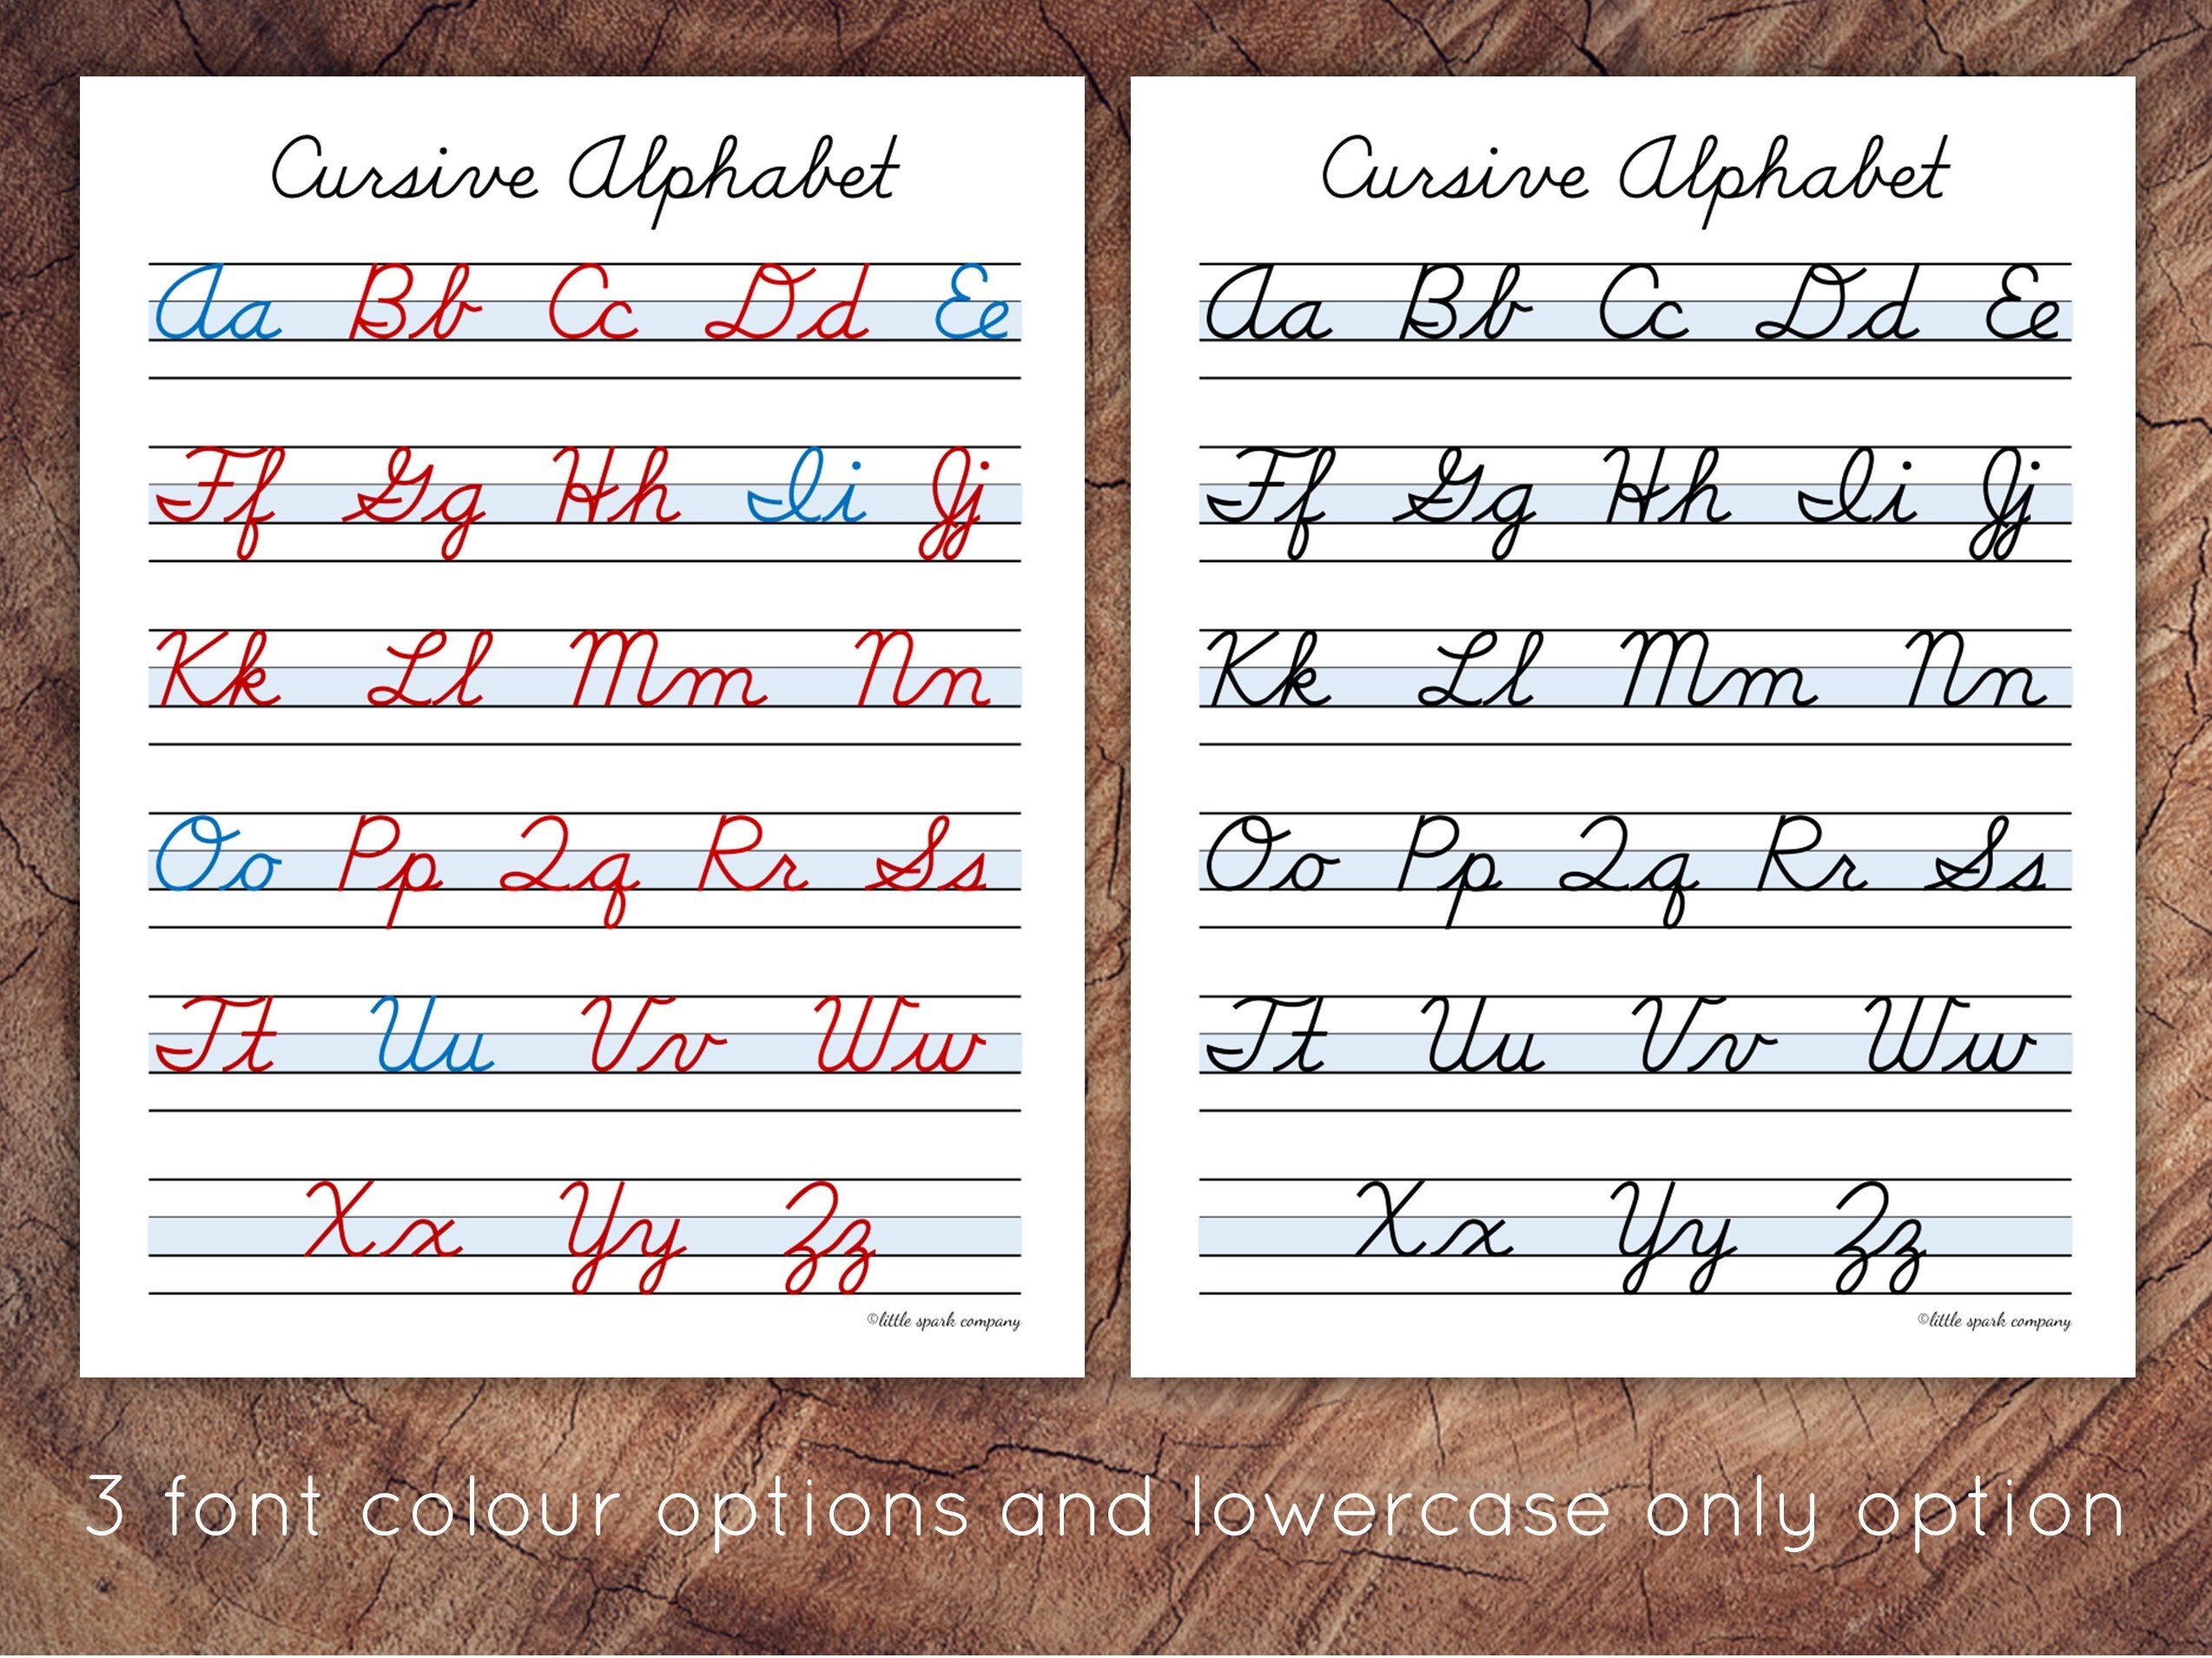 Cursive Alphabet
Aa Bb Cc Dd Ee
Ff Gg Hh Ii Jj
Kk Ll Mm Nn
Oo Pp Qq Rr Ss
Tt Uu Vv Ww
Xx Yy Zz
©little spark company
Cursive Alphabet
Aa Bb Cc Dd Ee
Ff Gg Hh Ii Jj
Kk Ll Mm Nn
Oo Pp Qq Rr Ss
Tt Uu Vv Ww
Xx Yy Zz
©little spark company
3 font colour options and lowercase only option